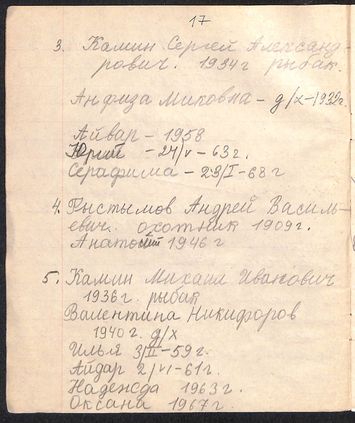 17
3. Камин Сергей Александ-
рович. 1934г рыбак.
Анфиза Миковна - д/х - 1939г.
Айвар - 1958
Юрий - 24/V - 63г.
Серафима - 23/I - 68г
4. Рыстымов Андрей Василь-
евич. охотник 1909г.
Анатолий 1946г
5. Камин Михаил Иванович
1936г. рыбак
Валентина Никифоров
1940г. д/х
Илья 3/II - 59г.
Айдар 2/VI - 61г.
Надежда 1963г.
Оксана 1967г